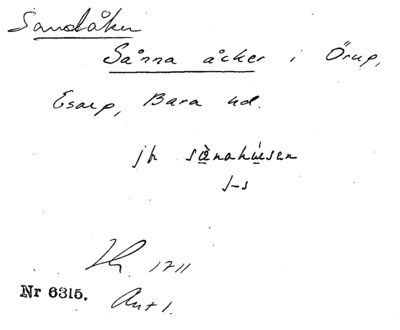 Sandåker
Sånna åcker i Örup,
Esarp, Bara hd.
jfr sånahusen
J-s
1711
Nr 6315. Ant 1.